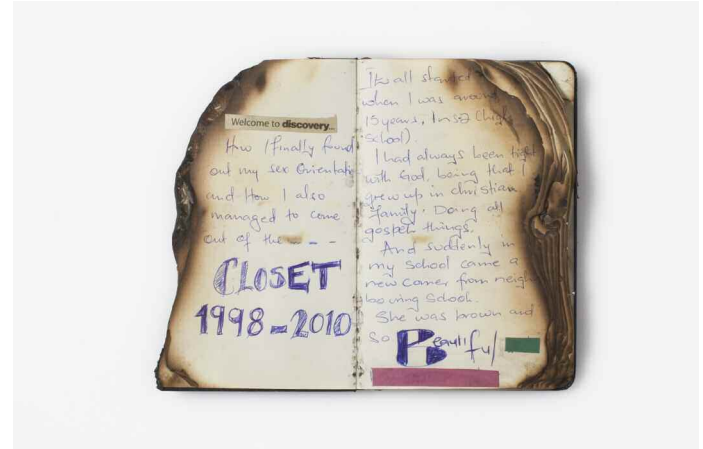 Welcome to discovery...
How I finally found
out my sex Orientatio
and How I also
managed to come
out of the - - -
CLOSET
1998-2010
It all started
when I was around
15 years, In S2 (high
School)
I had always been tight
with God, being that I
grew up in christian
family. Doing all
gospel things.
And suddenly in
my School came a
new comer from neigh
bouring School.
She was brown and
so Beautiful